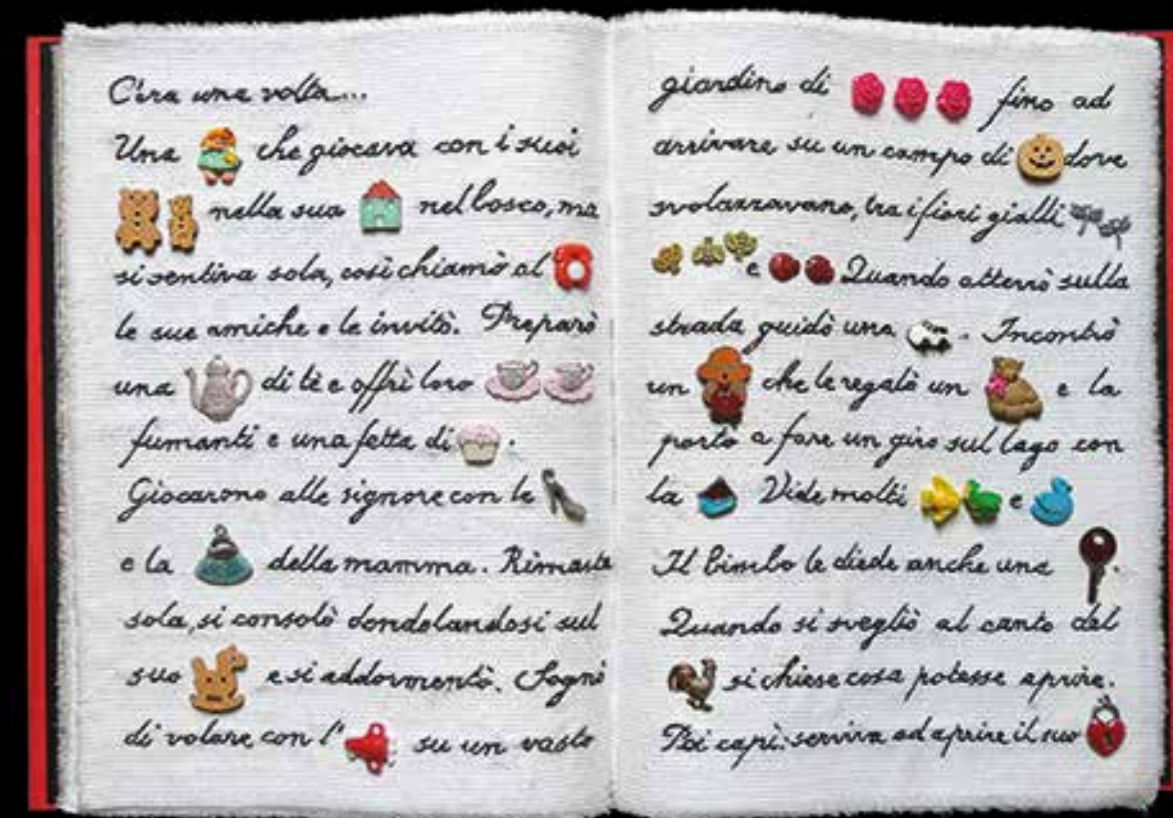 C'era una volta...
Una che giocava con i suoi
nella sua nel bosco, ma
si sentiva sola, così chiamò al
le sue amiche e le invitò. Preparò
una di tè e offrì loro
fumanti e una fetta di .
Giocarono alle signore con le
e la della mamma. Rimasta
sola, si consolò dondolandosi sul
suo e si addormentò. Sognò
di volare con l' su un vasto
giardino di fino ad
arrivare su un campo di dove
svolazzavano, tra i fiori gialli
e Quando atterrò sulla
strada guidò una . Incontrò
un che le regalò un e la
portò a fare un giro sul lago con
la Vide molti e
Il bimbo le diede anche una .
Quando si svegliò al canto del
si chiese cosa potesse aprire.
Poi capì: serviva ad aprire il suo